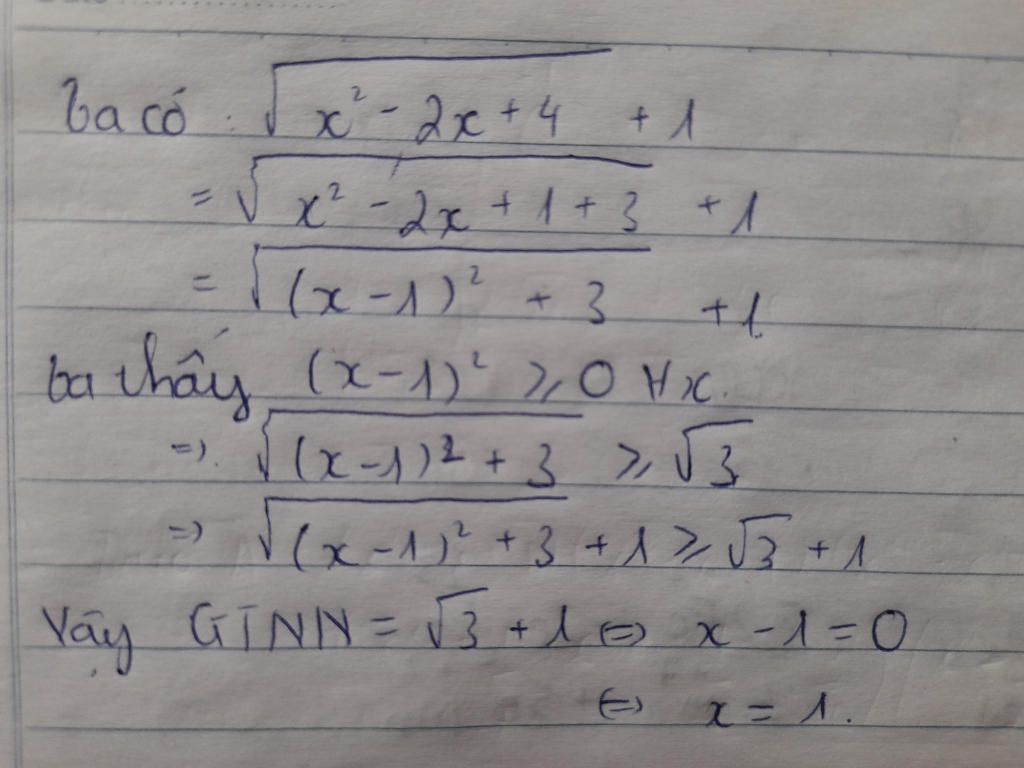 Ta có : √(x² - 2x + 4) + 1
= √(x² - 2x + 1 + 3) + 1
= √((x - 1)² + 3) + 1
Ta thấy (x - 1)² ⩾ 0 ∀x.
=> √((x - 1)² + 3) ⩾ √3
=> √((x - 1)² + 3) + 1 ⩾ √3 + 1
Vậy GTNN = √3 + 1 <=> x - 1 = 0
<=> x = 1.